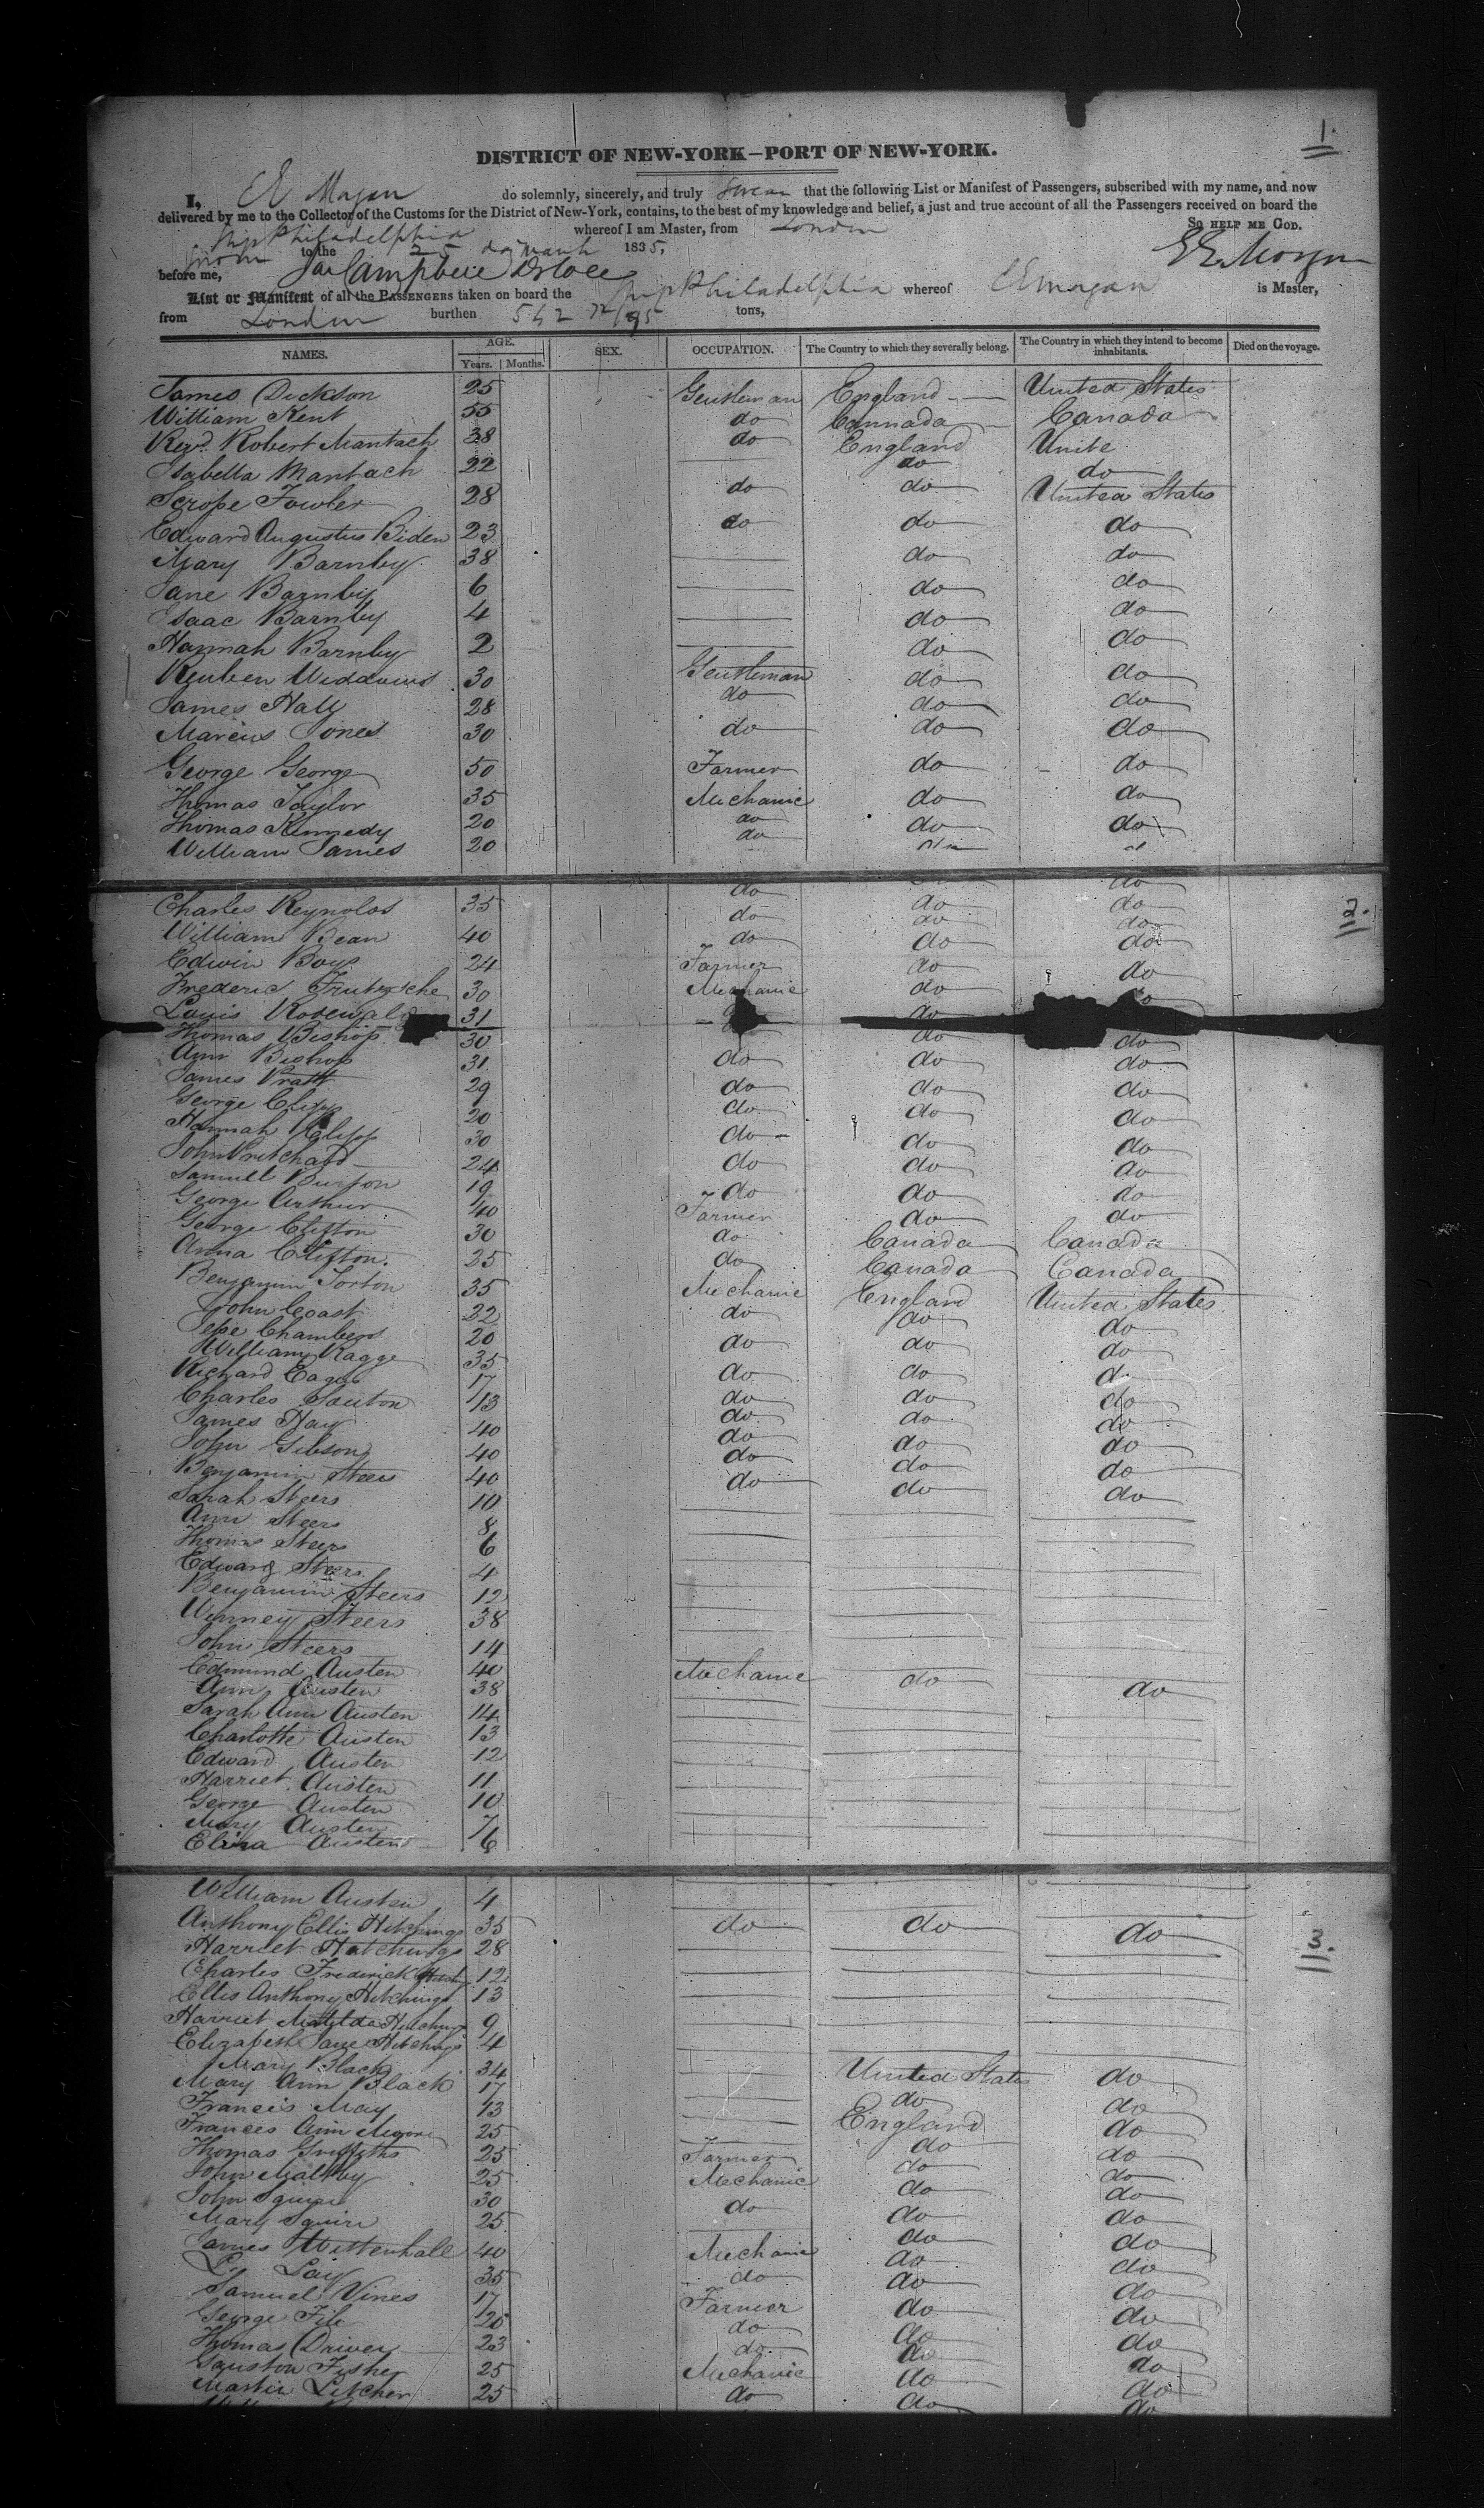 1.
DISTRICT OF NEW-YORK—PORT OF NEW-YORK.
I, E E Morgan do solemnly, sincerely, and truly swear that the following List or Manifest of Passengers, subscribed with my name, and now
delivered by me to the Collector of the Customs for the District of New-York, contains, to the best of my knowledge and belief, a just and true account of all the Passengers received on board the
Ship Philadelphia whereof I am Master, from London So HELP ME GOD.
to the 25 day March 1835, E E Morgan
before me,
List or Manifest of all the PASSENGERS taken on board the Ship Philadelphia whereof E E Morgan is Master,
from London burthen 542 72/95 tons,
NAMES. AGE. Years. Months. SEX. OCCUPATION. The Country to which they severally belong. The Country in which they intend to become inhabitants. Died on the voyage.
James Dickson 25 Gentleman England United States
William Kent 55 do Cannada Canada
Revd. Robert Mantach 38 do England Unite
Isabella Mantach 22 do do
Scrope Fowler 28 do do United States
Edward Augustus Biden 23 do do do
Mary Barnby 38 do do
Jane Barnby 6 do do
Isaac Barnby 4 do do
Hannah Barnby 2 do do
Reuben Widdows 30 Gentleman do do
James Haly 28 do do do
Marcus Jones 30 do do do
George George 50 Farmer do do
Thomas Taylor 35 Mechanic do do
Thomas Kennedy 20 do do do
William James 20 do
2.
Charles Reynolds 35 do do do
William Bean 40 do do do
Edwin Boys 24 Farmer do do
Frederic 30 Mechanic do do
Louis 31 do
Thomas Bishop 30 do do
Ann Bishop 31 do do do
James Pratt 29 do do do
George 20 do do do
Hannah 30 do do do
John Pritchard 24 do do do
Samuel Burton 19 do do do
George Arthur 40 Farmer do do
George Clifton 30 do Canada Canada
Anna Clifton 25 do Canada Canada
Benjamin 35 Mechanic England United States
John Coast 22 do do do
Jesse Chambers 20 do do do
William Ragge 35 do do d
Richard 17 do do do
Charles 13 do do do
James Hay 40 do do do
John Gibson 40 do do do
Benjamin Steers 40 do do do
Sarah Steers 10
Ann Steers 8
Thomas Steers 6
Edward Steers 4
Benjamin Steers 12
Winney Steers 38
John Steers 14
Edmund Austen 40 Mechanic do do
Ann Austen 38
Sarah Ann Austen 14
Charlotte Austen 13
Edward Austen 12
Harriet Austen 11
George Austen 10
Mary Austen 7
Eliza Austen 6
William Austen 4
3.
Anthony Ellis Hitchings 35 do do do
Harriet Hutchings 28
Charles Frederick 12
Ellis Anthony Hitchings 13
Harriet Matilda Hitchings 9
Elizabeth Jane Hitchings 4
Mary Black 34 United States do
Mary Ann Black 17 do do
Francis May 13 England do
Frances Ann Moore 25 do do
Thomas Griffiths 25 Farmer do do
John Maltby 25 Mechanic do do
John Squire 30 do do do
Mary Squire 25 do do
James Wittenhall 40 Mechanic do do
L. Lay 35 do do do
Samuel Vines 17 Farmer do do
George File 20 do do do
Thomas Driver 23 do do do
Fisher 25 Mechanic do do
Martin Letcher 25 do do do